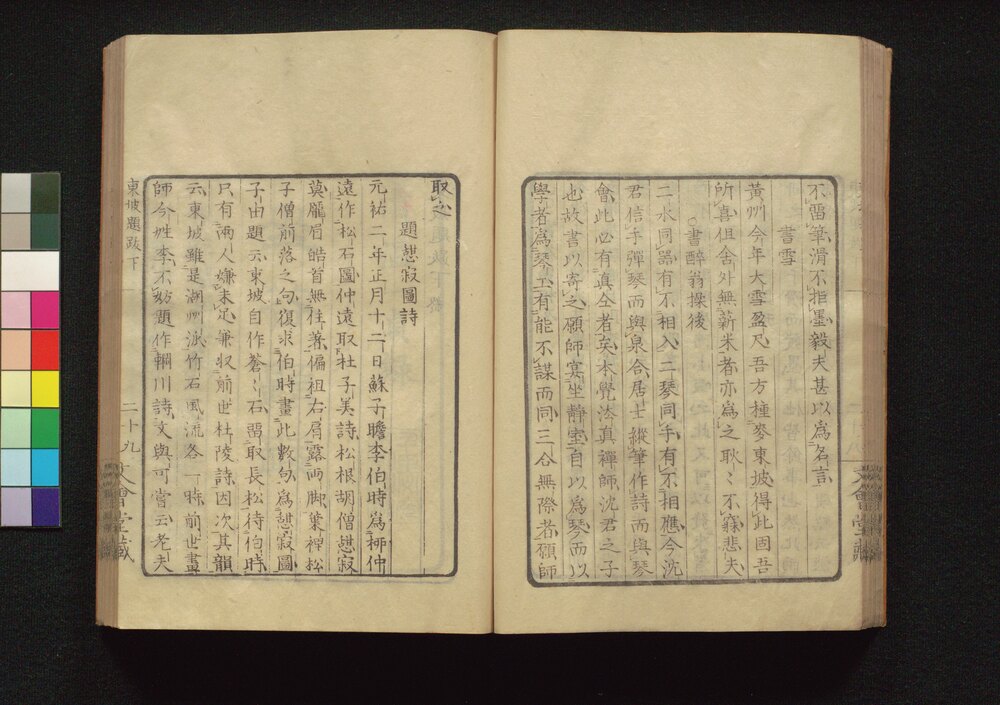 不留筆滑不拒墨毅夫甚以爲名言
書雪
黃州今年大雪盈尺吾方種麥東坡得此固吾
所喜但舍外無薪米者亦爲之耿〻不寐悲夫
書醉翁操後
二水同器有不相入二琴同手有不相應今沈
君信手彈琴而與泉合居士縱筆作詩而與琴
會此必有真全者矣本覺法真禪師沈君之子
也故書以寄之願師宴坐靜室自以爲琴而以
學者爲琴工有能不謀而同三合無際者願師
取之
題憇寂圖詩
元祐二年正月十二日蘇子瞻李伯時爲柳仲
遠作松石圖仲遠取杜子美詩松根胡僧憇寂
莫龎眉皓首無住著偏袒右肩露兩脚葉裡松
子僧前落之句復求伯時畫此數句爲憇寂圖
子由題云東坡自作蒼〻石留取長松待伯時
只有兩人嫌未足兼収前世杜陵詩因次其韻
云東坡雖是湖州派竹石風流各一時前世畫
師今姓李不妨題作輞川詩文與可嘗云老夫
東坡題跋下
二十九
文會堂藏
文會堂藏